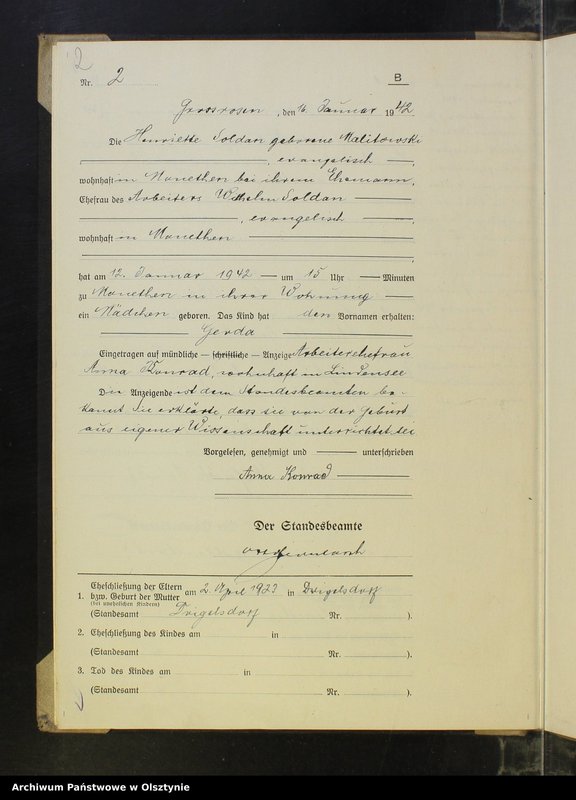 2
Nr. 2
B
Grossrosen, den 16. Januar 1942
Die Henriette Soldan geborene Malitowski
, evangelisch
wohnhaft in Monethen bei ihrem Ehemann,
Ehefrau des Arbeiters Wilhelm Soldan
, evangelisch
wohnhaft in Monethen
hat am 12. Januar 1942 um 15 Uhr Minuten
zu Monethen in ihrer Wohnung
ein Mädchen geboren. Das Kind hat den Vornamen erhalten:
Gerda
Eingetragen auf mündliche – schriftliche – Anzeige Arbeiterehefrau
Anna Konrad, wohnhaft in Lindensee
Die Anzeigende ist dem Standesbeamten be-
kannt Sie erklärte, dass sie von der Geburt
aus eigener Wissenschaft unterrichtet sei
Vorgelesen, genehmigt und unterschrieben
Anna Konrad
Der Standesbeamte
1. Eheschließung der Eltern am 2. April 1923 in Drigelsdorf
bzw. Geburt der Mutter
(bei unehelichen Kindern)
(Standesamt Drigelsdorf Nr. ).
2. Eheschließung des Kindes am in
(Standesamt Nr. ).
3. Tod des Kindes am in
(Standesamt Nr. ).
Archiwum Państwowe w Olsztynie